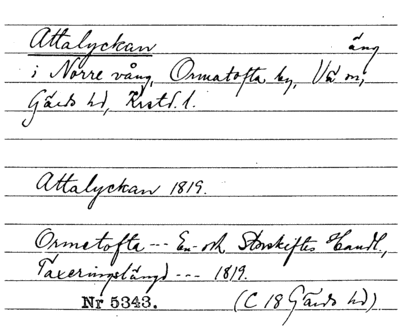 Attalyckan äng
i Norre vång, Ormatofta by, Vä sn,
Gärds hd, Krstd. l.
Attalyckan 1819.
Ormetofta --- En- och Storskiftes Handl.,
Taxeringslängd --- 1819.
Nr 5343. (C 18 Gärds hd)